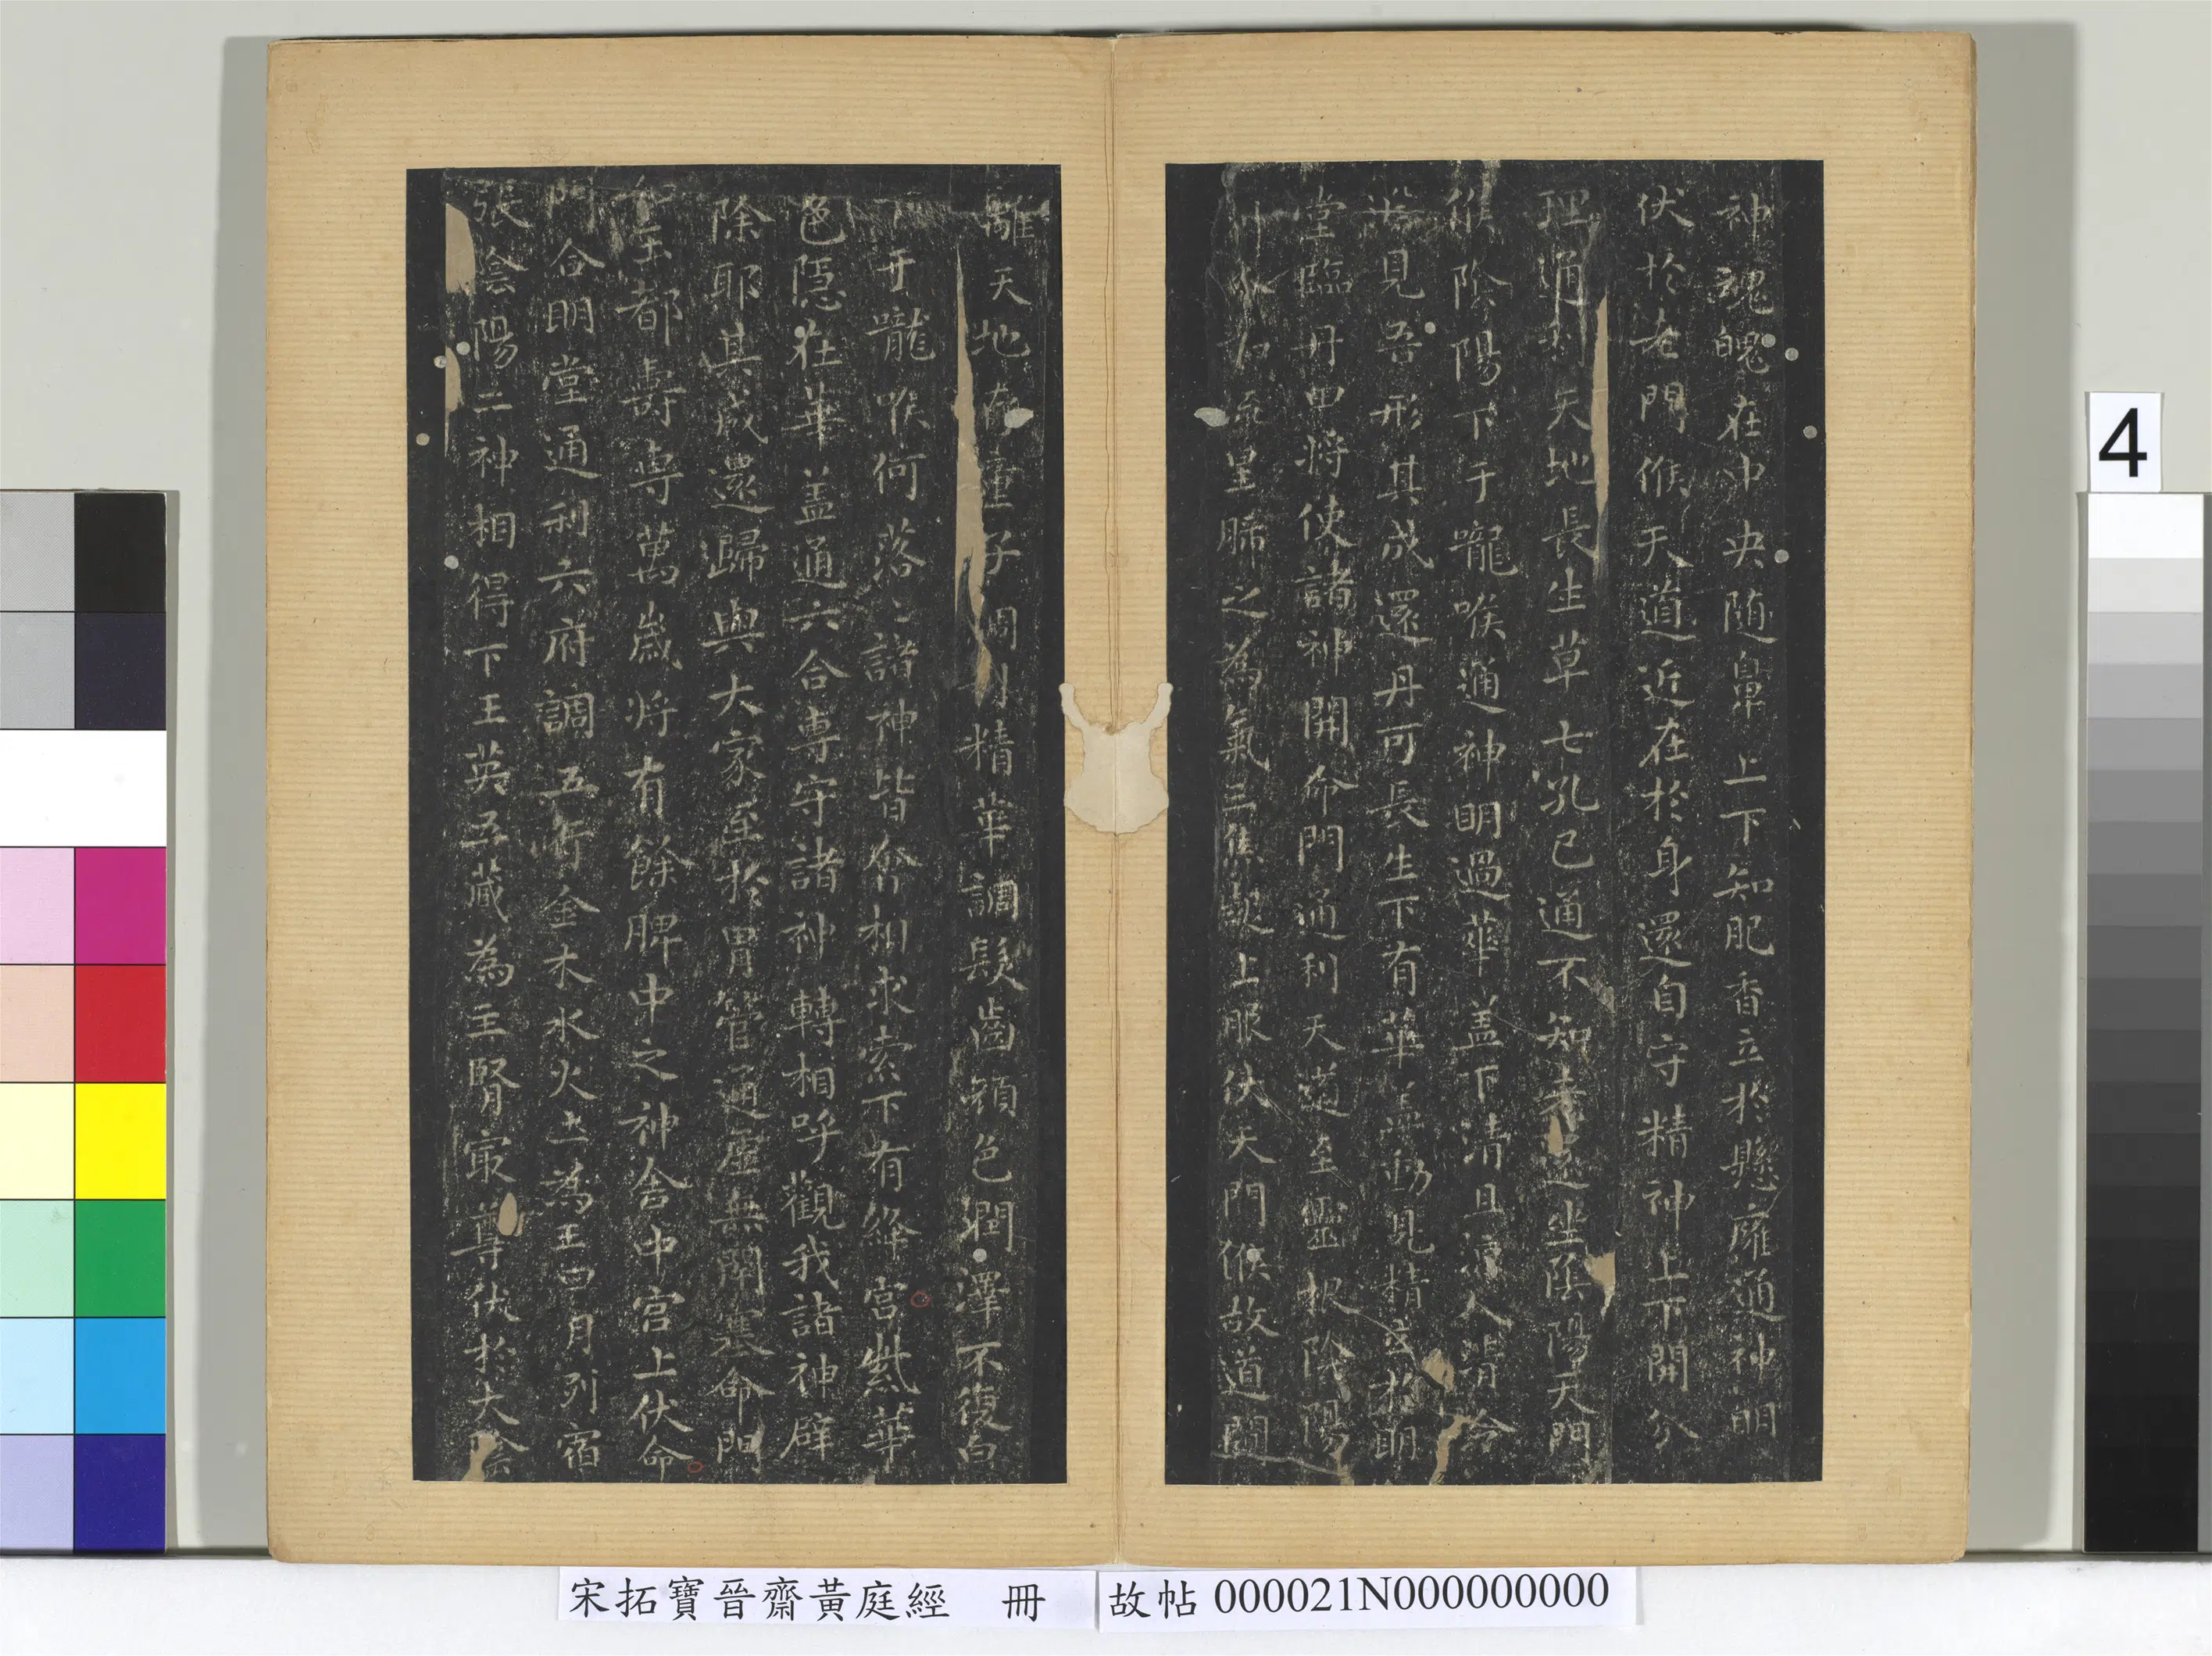 神魂魄在中央随鼻上下知肥香立於懸廱通神明
伏於老門候天道近在於身還自守精神上下開分
理通利天地長生草七孔已通不知老還坐陰陽天門
候陰陽下于嚨喉通神明過華蓋下清且涼入清泠
淵見吾形其成還丹可長生下有華蓋動見精立於明
堂臨丹田將使諸神開命門通利天道至靈根陰陽
列布如流星肺之為氣三焦起上服伏天門候故道闚
離天地存童子調利精華調髮齒顏色潤澤不復白
下于嚨喉何落〻諸神皆會相求索下有絳宮紫華
色隱在華盖通六合專守諸神轉相呼觀我諸神辟
除耶其成還歸與大家至於胃管通虛無閉塞命門
如玉都壽專萬歲將有餘脾中之神舍中宮上伏命
門合明堂通利六府調五行金木水火土為王日月列宿
張陰陽二神相得下玉英五藏為主腎冣尊伏於大陰
4
宋拓寶晉齋黃庭經 冊
故帖 000021N000000000